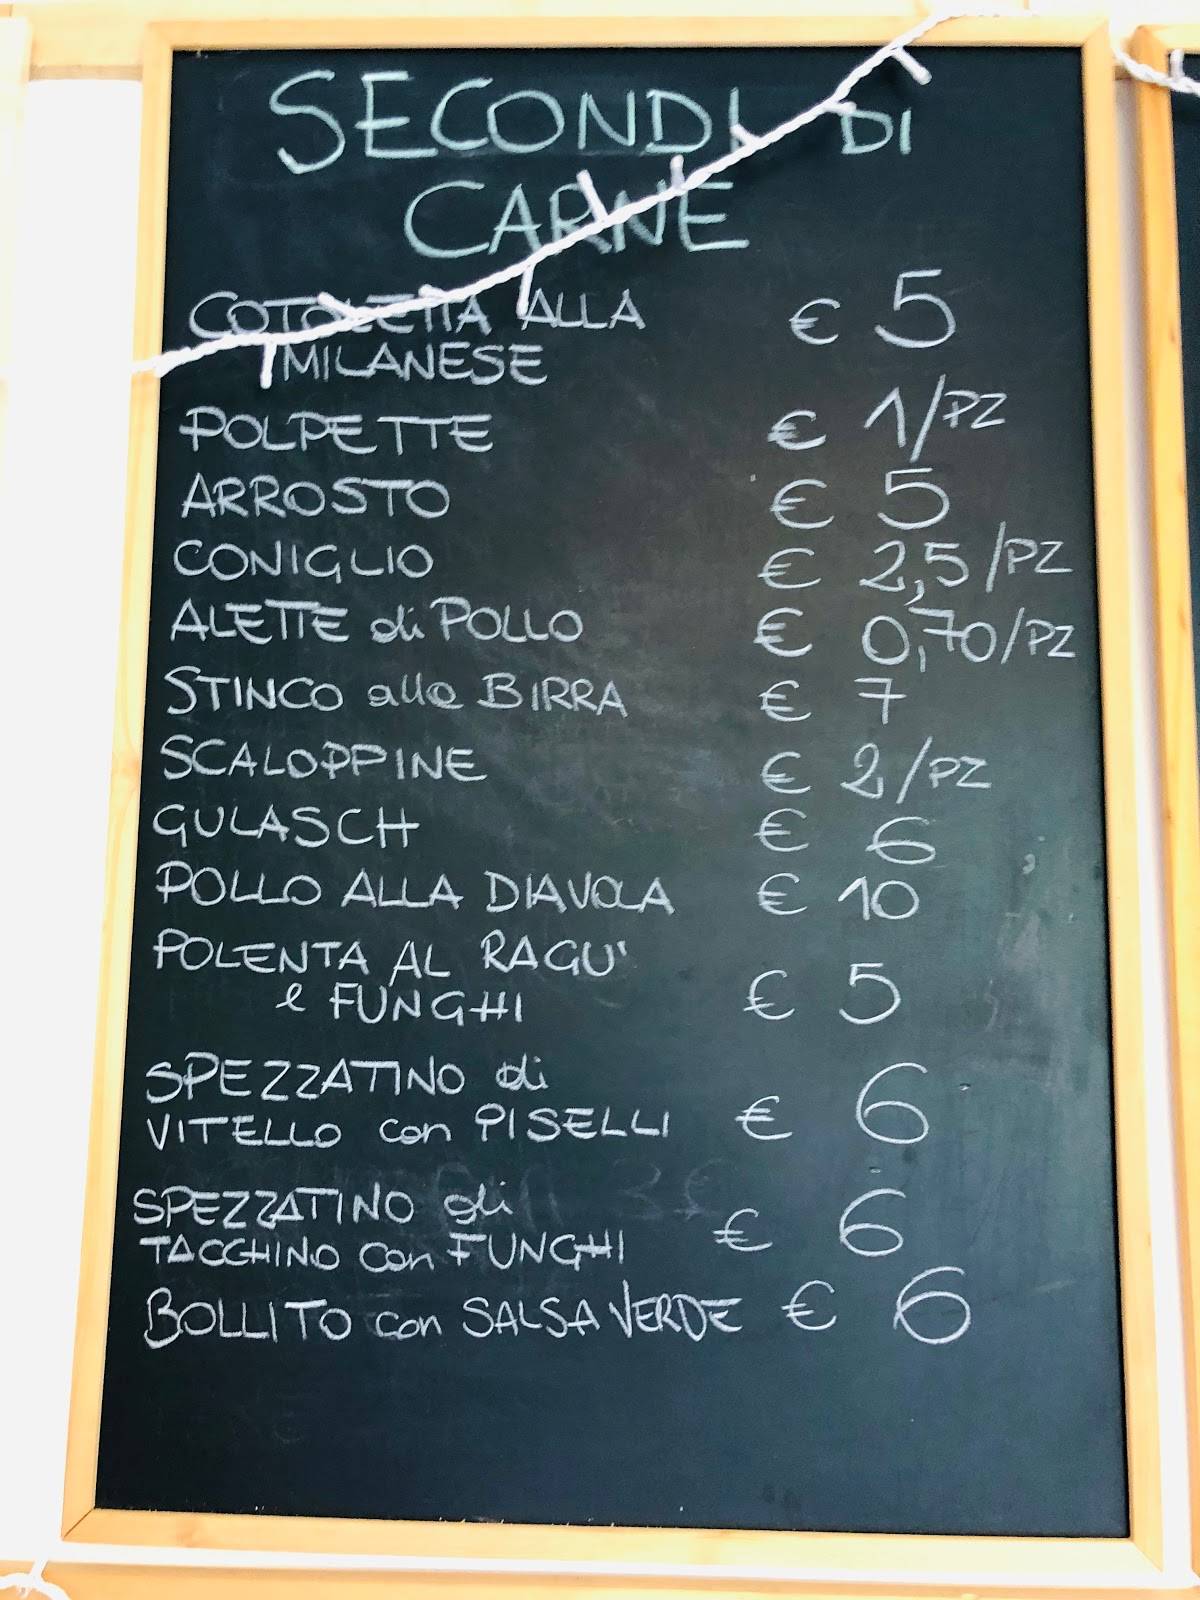 SECONDI DI
CARNE
COTOLETTA ALLA € 5
MILANESE
POLPETTE € 1/PZ
ARROSTO € 5
CONIGLIO € 2,5/PZ
ALETTE di POLLO € 0,70/PZ
STINCO alla BIRRA € 7
SCALOPPINE € 2/PZ
GULASCH € 6
POLLO ALLA DIAVOLA € 10
POLENTA AL RAGU'
e FUNGHI € 5
SPEZZATINO di
VITELLO con PISELLI € 6
SPEZZATINO di
TACCHINO con FUNGHI € 6
BOLLITO con SALSA VERDE € 6